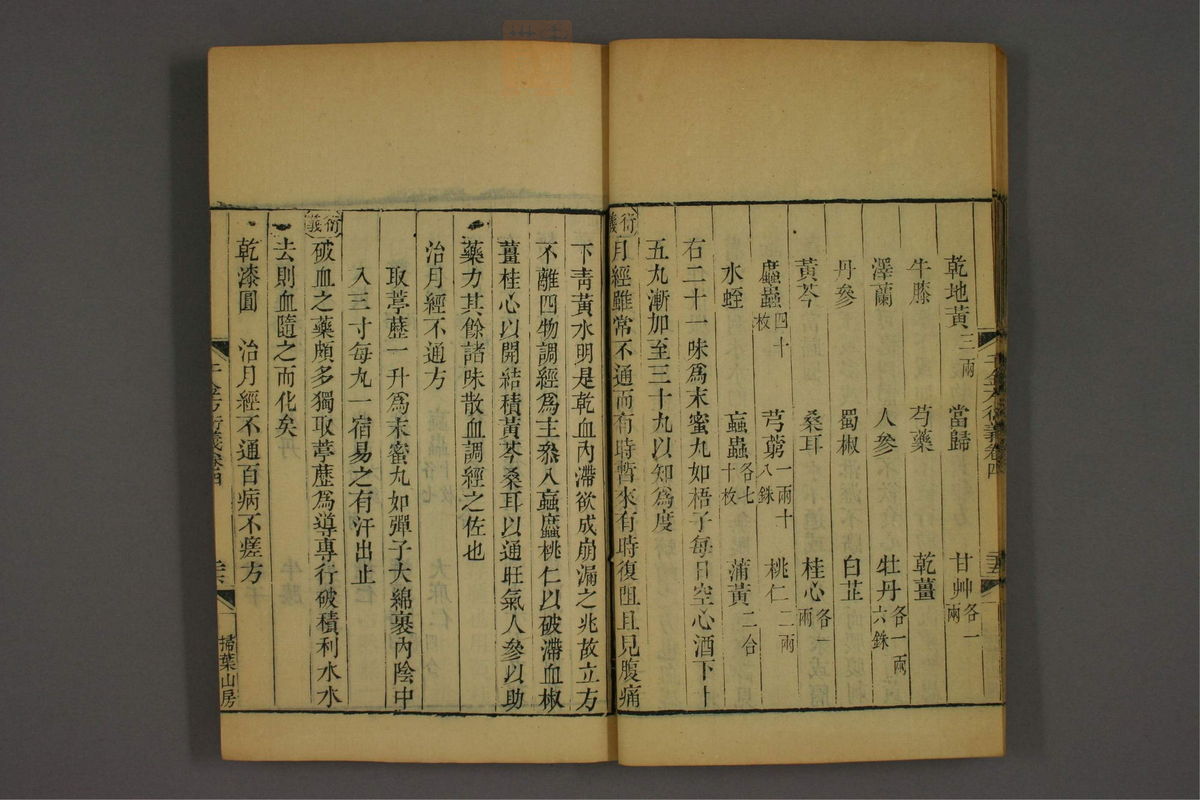 乾地黃三兩 當歸 甘艸各一兩
牛膝 芍藥 乾薑
澤蘭 人參 牡丹各一兩六銖
丹參 蜀椒 白芷
黃芩 桑耳 桂心各一兩
䗪蟲四十枚 芎藭一兩十八銖 桃仁二兩
水蛭 蝱蟲各七十枚 蒲黃二合
右二十一味爲末蜜丸如梧子每日空心酒下十
五丸漸加至三十丸以知爲度
衍義 月經雖常不通而有時暫來有時復阻且見腹痛
下靑黃水明是乾血內滯欲成崩漏之兆故立方
不離四物調經爲主叅入蝱䗪桃仁以破滯血椒
薑桂心以開結積黃芩桑耳以通旺氣人參以助
藥力其餘諸味散血調經之佐也
治月經不通方
取葶藶一升爲末蜜丸如彈子大綿裹內陰中
入三寸每丸一宿易之有汗出止
衍義 破血之藥頗多獨取葶藶爲導專行破積利水水
去則血隨之而化矣
乾漆圓 治月經不通百病不瘥方
千金方衍義卷四
掃葉山房